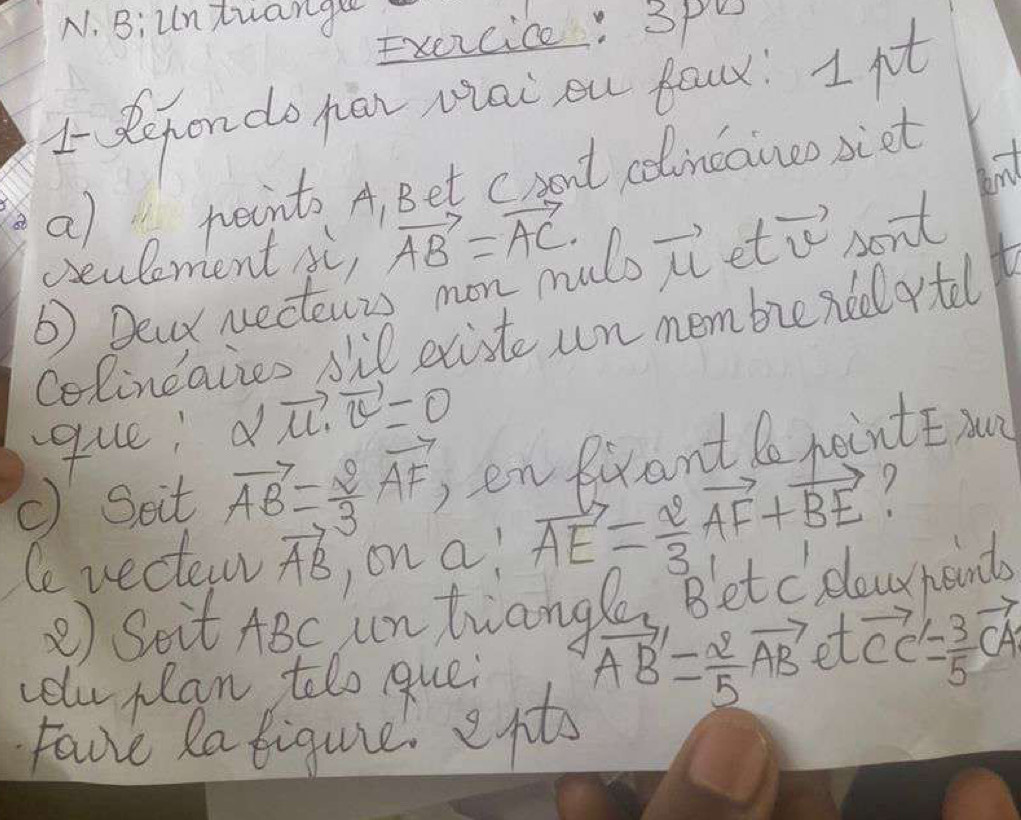 N.B: Un triangle
Exercice : 3pts
1- Réponds par vrai ou faux: 1 pt
a) points A, B et C sont colinéaires si et
seulement si, AB⃗ = AC⃗.
b) Deux vecteurs non nuls u⃗ et v⃗ sont
Colinéaires s'il existe un nombre réel α tel
que : α u⃗. v⃗ = 0
c) Soit AB⃗ = 2/3 AF⃗, en fixant le point E sur
le vecteur AB⃗, on a : AE⃗ = 2/3 AF⃗ + BE⃗ ?
2) Soit ABC un triangle, B' et C' deux points
du plan tels que: AB'⃗ = 2/5 AB⃗ et CC'⃗ = 3/5 CA⃗
Faire la figure. 2 pts